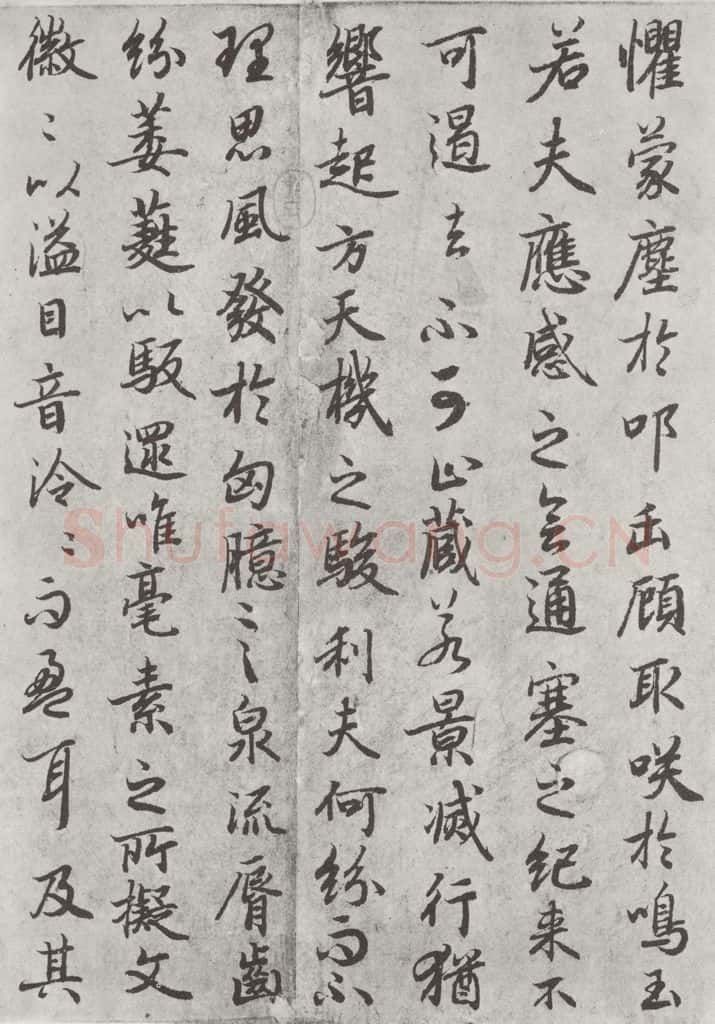 懼蒙塵於叩缶顧取咲於鳴玉
若夫應感之會通塞之紀来不
可遏去不可止藏若景滅行猶
響起方天機之駿利夫何紛而不
理思風發於匈臆言泉流脣齒
紛萎蕤以馺遝唯毫素之所擬文
徽〻以溢目音泠〻而盈耳及其
Shufawang.CN